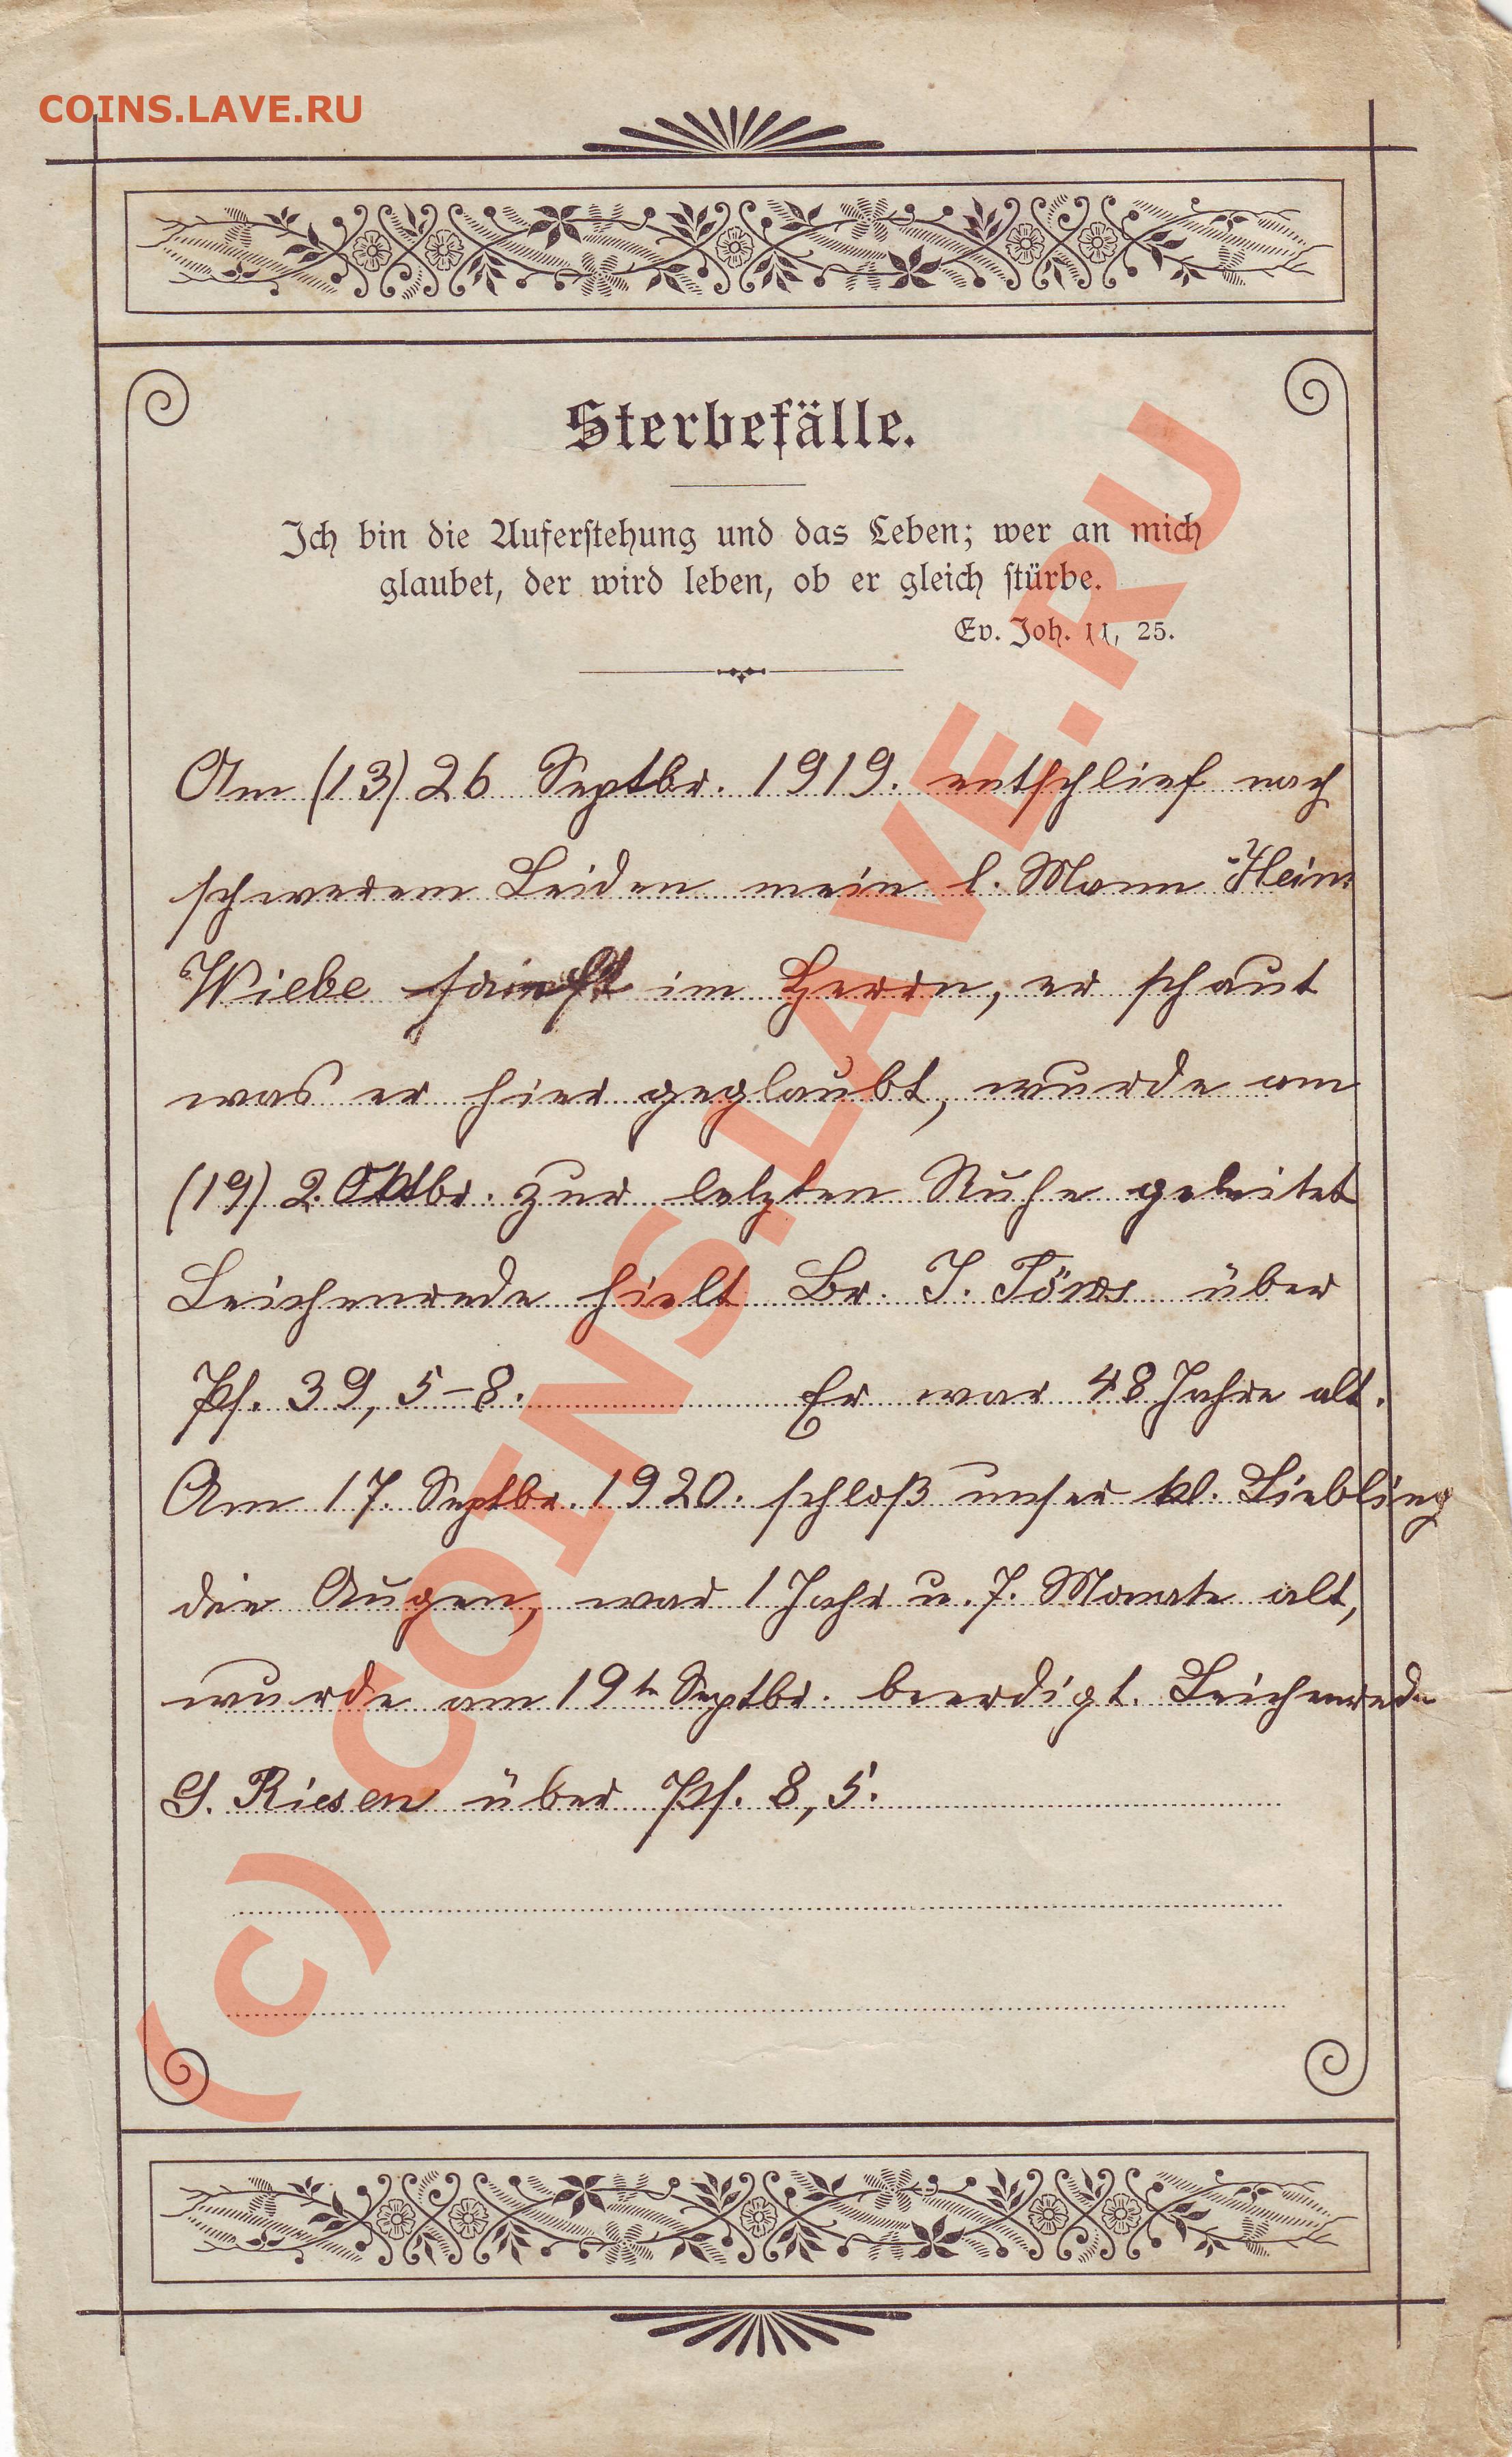 COINS.LAVE.RU
Sterbefälle.
Ich bin die Auferstehung und das Leben; wer an mich
glaubet, der wird leben, ob er gleich stürbe.
Ev. Joh. 11, 25.
Am (13) 26 Septbr. 1919. entschlief nach
schwerem Leiden mein l. Mann Hein.
Wiebe sanft im Herrn, er schaut
was er hier geglaubt, wurde am
(19) 2. Oktbr. zur letzten Ruhe geleitet
Leichenrede hielt Br. J. Töws über
Ps. 39, 5-8. Er war 48 Jahre alt.
Am 17. Septbr. 1920. schloß unser kl. Liebling
die Augen, war 1 Jahr u. 7. Monate alt,
wurde am 19te Septbr. beerdigt. Leichenrede
G. Riesen über Ps. 8, 5.
(c) COINS.LAVE.RU